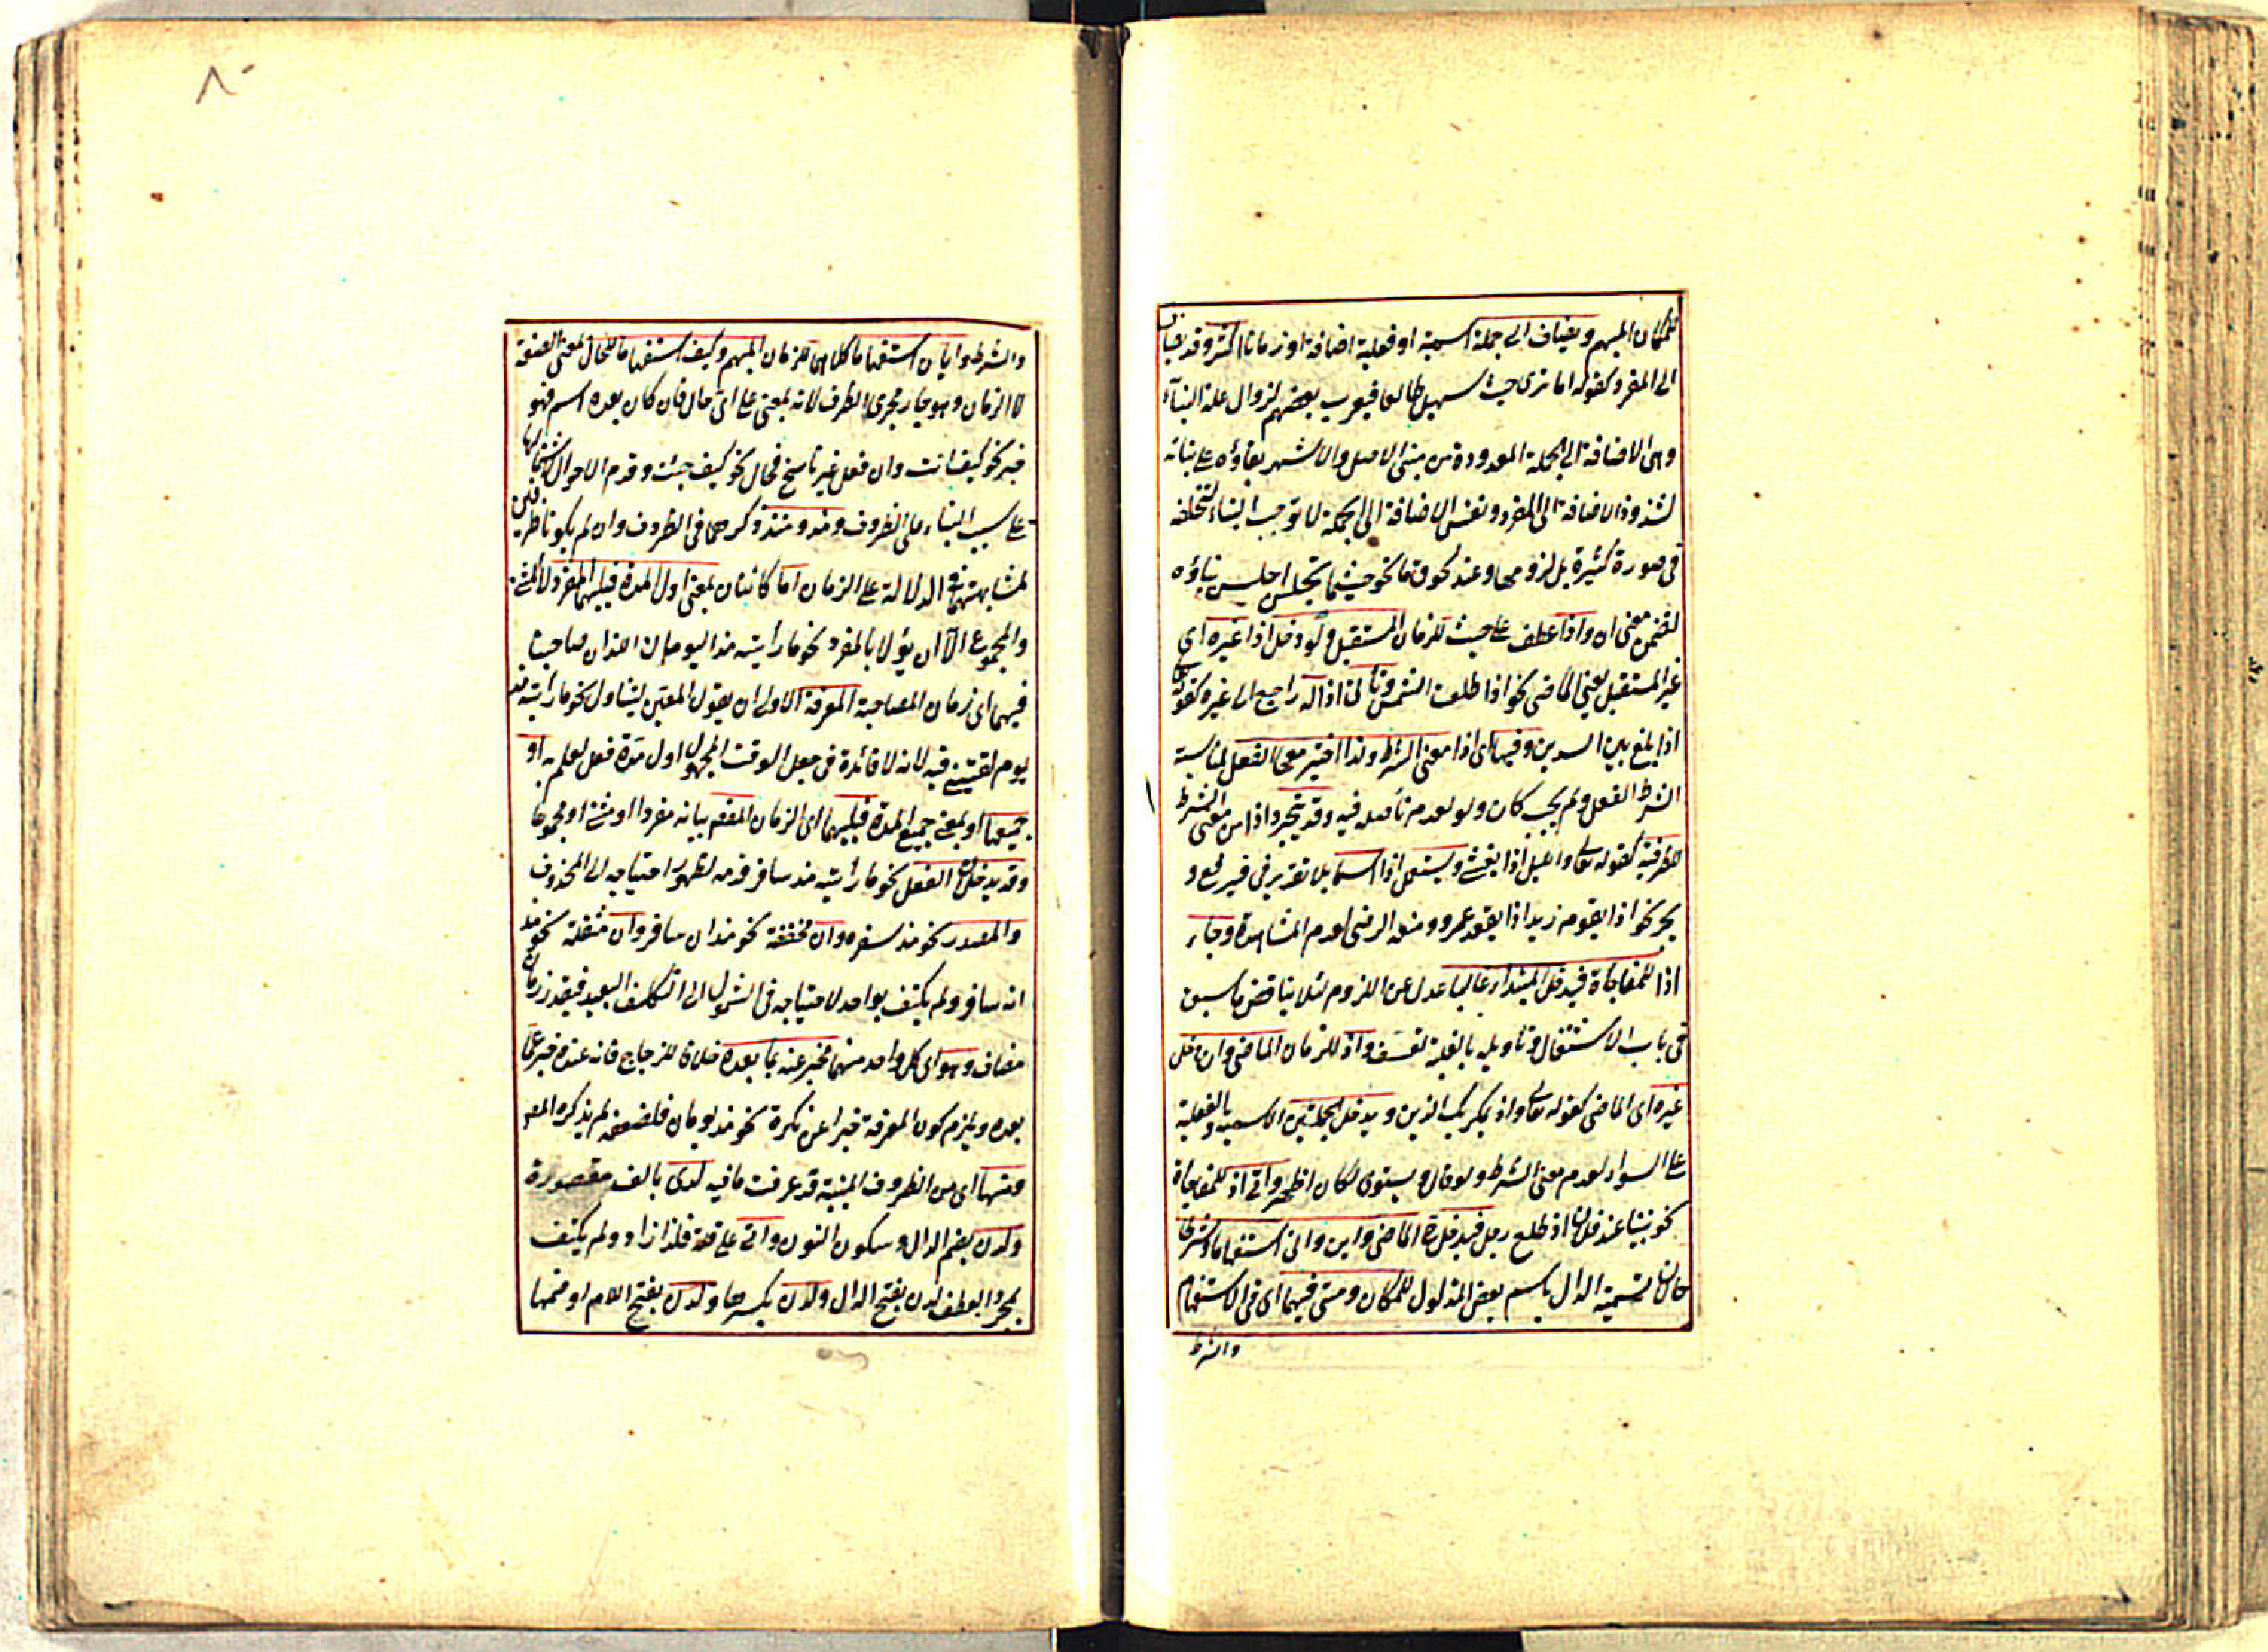 للمكان المبهم ويضاف الى جملة اسمية او فعلية اضافة او زمانا اكثر وقد يضاف
الى المفرد كقوله اما ترى حيث سهيل طالعا فيعرب بعضهم لزوال علة البناء
وهى الاضافة الى الجملة المعدودة من مبنى الاصل والاشهر بقاؤه على بنائه
لشذوذ الاضافة الى المفرد ونفس الاضافة الى الجملة لا توجب البناء لتخلفه
فى صورة كثيرة بل لزومها وعند لحوق ما نحو حيثما تجلس اجلس بناؤه
لتضمن معنى ان واذا عطف على حيث للزمان المستقبل ولو دخل اذا غيره اى
غير المستقبل يعنى الماضى نحو اذا طلعت الشمس وتأ راجع الى غيره كقوله تعالى
اذا بلغ بين السدين وفيها اى اذا معنى الشرط ولذا اختير معها الفعل لمناسبة
الشرط الفعل ولم يجب كان ولو لعدم تأصله فيه وقد يتجرد اذا من معنى الشرط
لظرفية كقوله تعالى والليل اذا يغشى ويستعمل اذا اسما بلا تقدير فى فيرفع و
يجر نحو اذا يقوم زيد اذا يقعد عمرو ومنعه الرضى لعدم المشاهدة وجاء
اذا للمفاجاة فيدخل المبتداء غالبا عدل عن اللزوم لئلا يناقض ما سبق
فى باب الاشتغال وتاويله بالغلبة تعسف واذ للزمان الماضى وان دخل
غيره اى الماضى كقوله تعالى واذ يمكر بك الذين ويدخل الجملتين الاسمية والفعلية
على السواء لعدم معنى الشرط ولو قال ويستوى لكان اظهر واتى اذ للمفاجاة
نحو بينا عند فلان اذ طلع رجل فيدخل الماضى واين وانى استفهاما وشرطا
حالان تسمية الدال باسم بعض المدلول للمكان ومتى فيهما اى فى الاستفهام
والشرط
٨٠
والشرط وايان استفهاما كلاهما للزمان المبهم وكيف استفهاما للحال بمعنى الصفة
لا الزمان وهو جار مجرى الظرف لانه بمعنى على اى حال فان كان بعده اسم فهو
خبر نحو كيف انت وان فعل غير ناسخ فحال نحو كيف جئت وقدم الاحوال
على سبب البناء على الظروف ومذ ومنذ ذكرهما فى الظروف وان لم يكونا ظرفين
لمشابهتهما فى الدلالة على الزمان اما كائنان بمعنى اول المدة فيليهما المفرد لا المثنى
والمجموع الا ان يؤلا بالمفرد نحو ما رأيته مذ اليومان اللذان صاحبنا
فيهما اى زمان المصاحبة المعرفة الاولى ان يقول المعين ليتناول نحو ما رأيته مذ
يوم لقيتنى فيه لانه لا فائدة فى جعل الوقت المجهول اول مدة فعل لعلم به او
جميعها او بمعنى جميع المدة فيليهما اى الزمان المقصود بيانه مفردا او مثنى او مجموعا
وقد يدخلان الفعل نحو ما رأيته مذ سافر قدمه لظهور احتياجه الى المحذوف
والمصدر نحو مذ سفره وان مخففة نحو مذ ان سافر وان مثقلة نحو مذ
انه سافر ولم يكتف بواحد لاحتياجه فى الشمول الى التكلف البعيد فيقدر زمان
مضاف وهو اى كل واحد منهما مخبر عنه بما بعده خلافا للزجاج فانه عنده خبر عما
بعده ويلزم كون المعرفة خبرا عن نكرة نحو مذ يومان فلضعفه لم يذكره المص
ومنها اى من الظروف المبنية قد عرفت ما فيه لدى بالف مقصورة
ولدن بضم الدال وسكون النون واتى على قلة فلذا زاد ولم يكتف
بمجرد العطف لدن بفتح الدال ولدن بكسرها ولدن بفتح اللام او ضمها